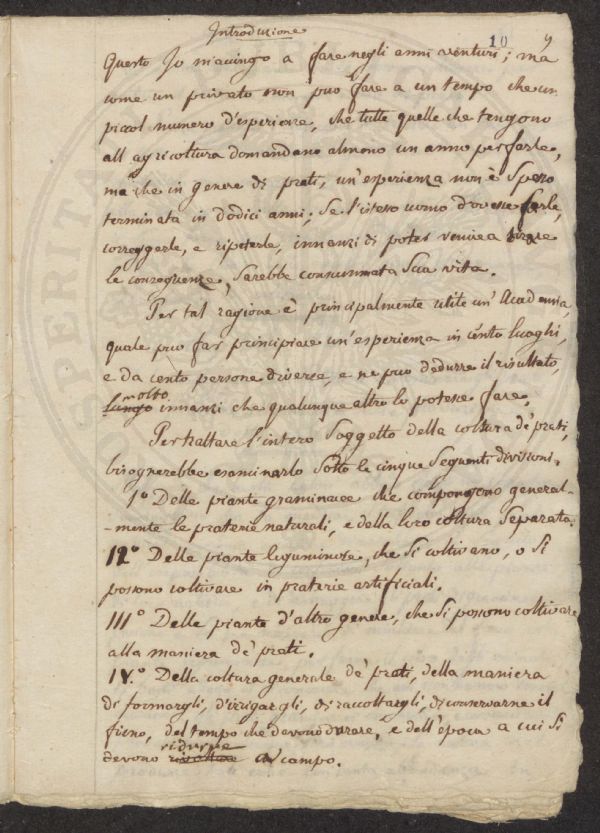 Introduzione
10 9
Questo Jo m'accingo a fare negli anni aventuri; ma
come un privato non può fare a un tempo che un
piccol numero d'esperienze, che tutte quelle che tengono
all'agricoltura domandano almeno un anno per farle,
ma che in genere di prati, un'esperienza non è spesso
terminata in dodici anni; se l'istesso uomo dovesse farle,
correggerle, e ripeterle, innanzi di poter venire a tirare
le conseguenze, sarebbe consummata sua vita.
Per tal ragione è principalmente utile un'Academia,
quale può far principiare un'esperienza in cento luoghi,
e da cento persone diverse, e ne può dedurre il risultato,
molto
lungo innanzi che qualunque altro lo potesse fare.
Per trattare l'intero soggetto della coltura de' prati,
bisognerebbe esaminarlo sotto le cinque seguenti divisioni.
1º Delle piante graminacee che compongono general-
-mente le praterie naturali, e della loro coltura separata.
IIº Delle piante leguminose, che si coltivano, o si
possono coltivare in praterie artificiali.
IIIº Delle piante d'altro genere, che si possono coltivare
alla maniera de' prati.
IV.º Della coltura generale de' prati, della maniera
di formargli, d'irrigargli, di raccoltargli, di conservarne il
fieno, del tempo che devono durare, e dell'epoca a cui si
ridurre
devono a campo.